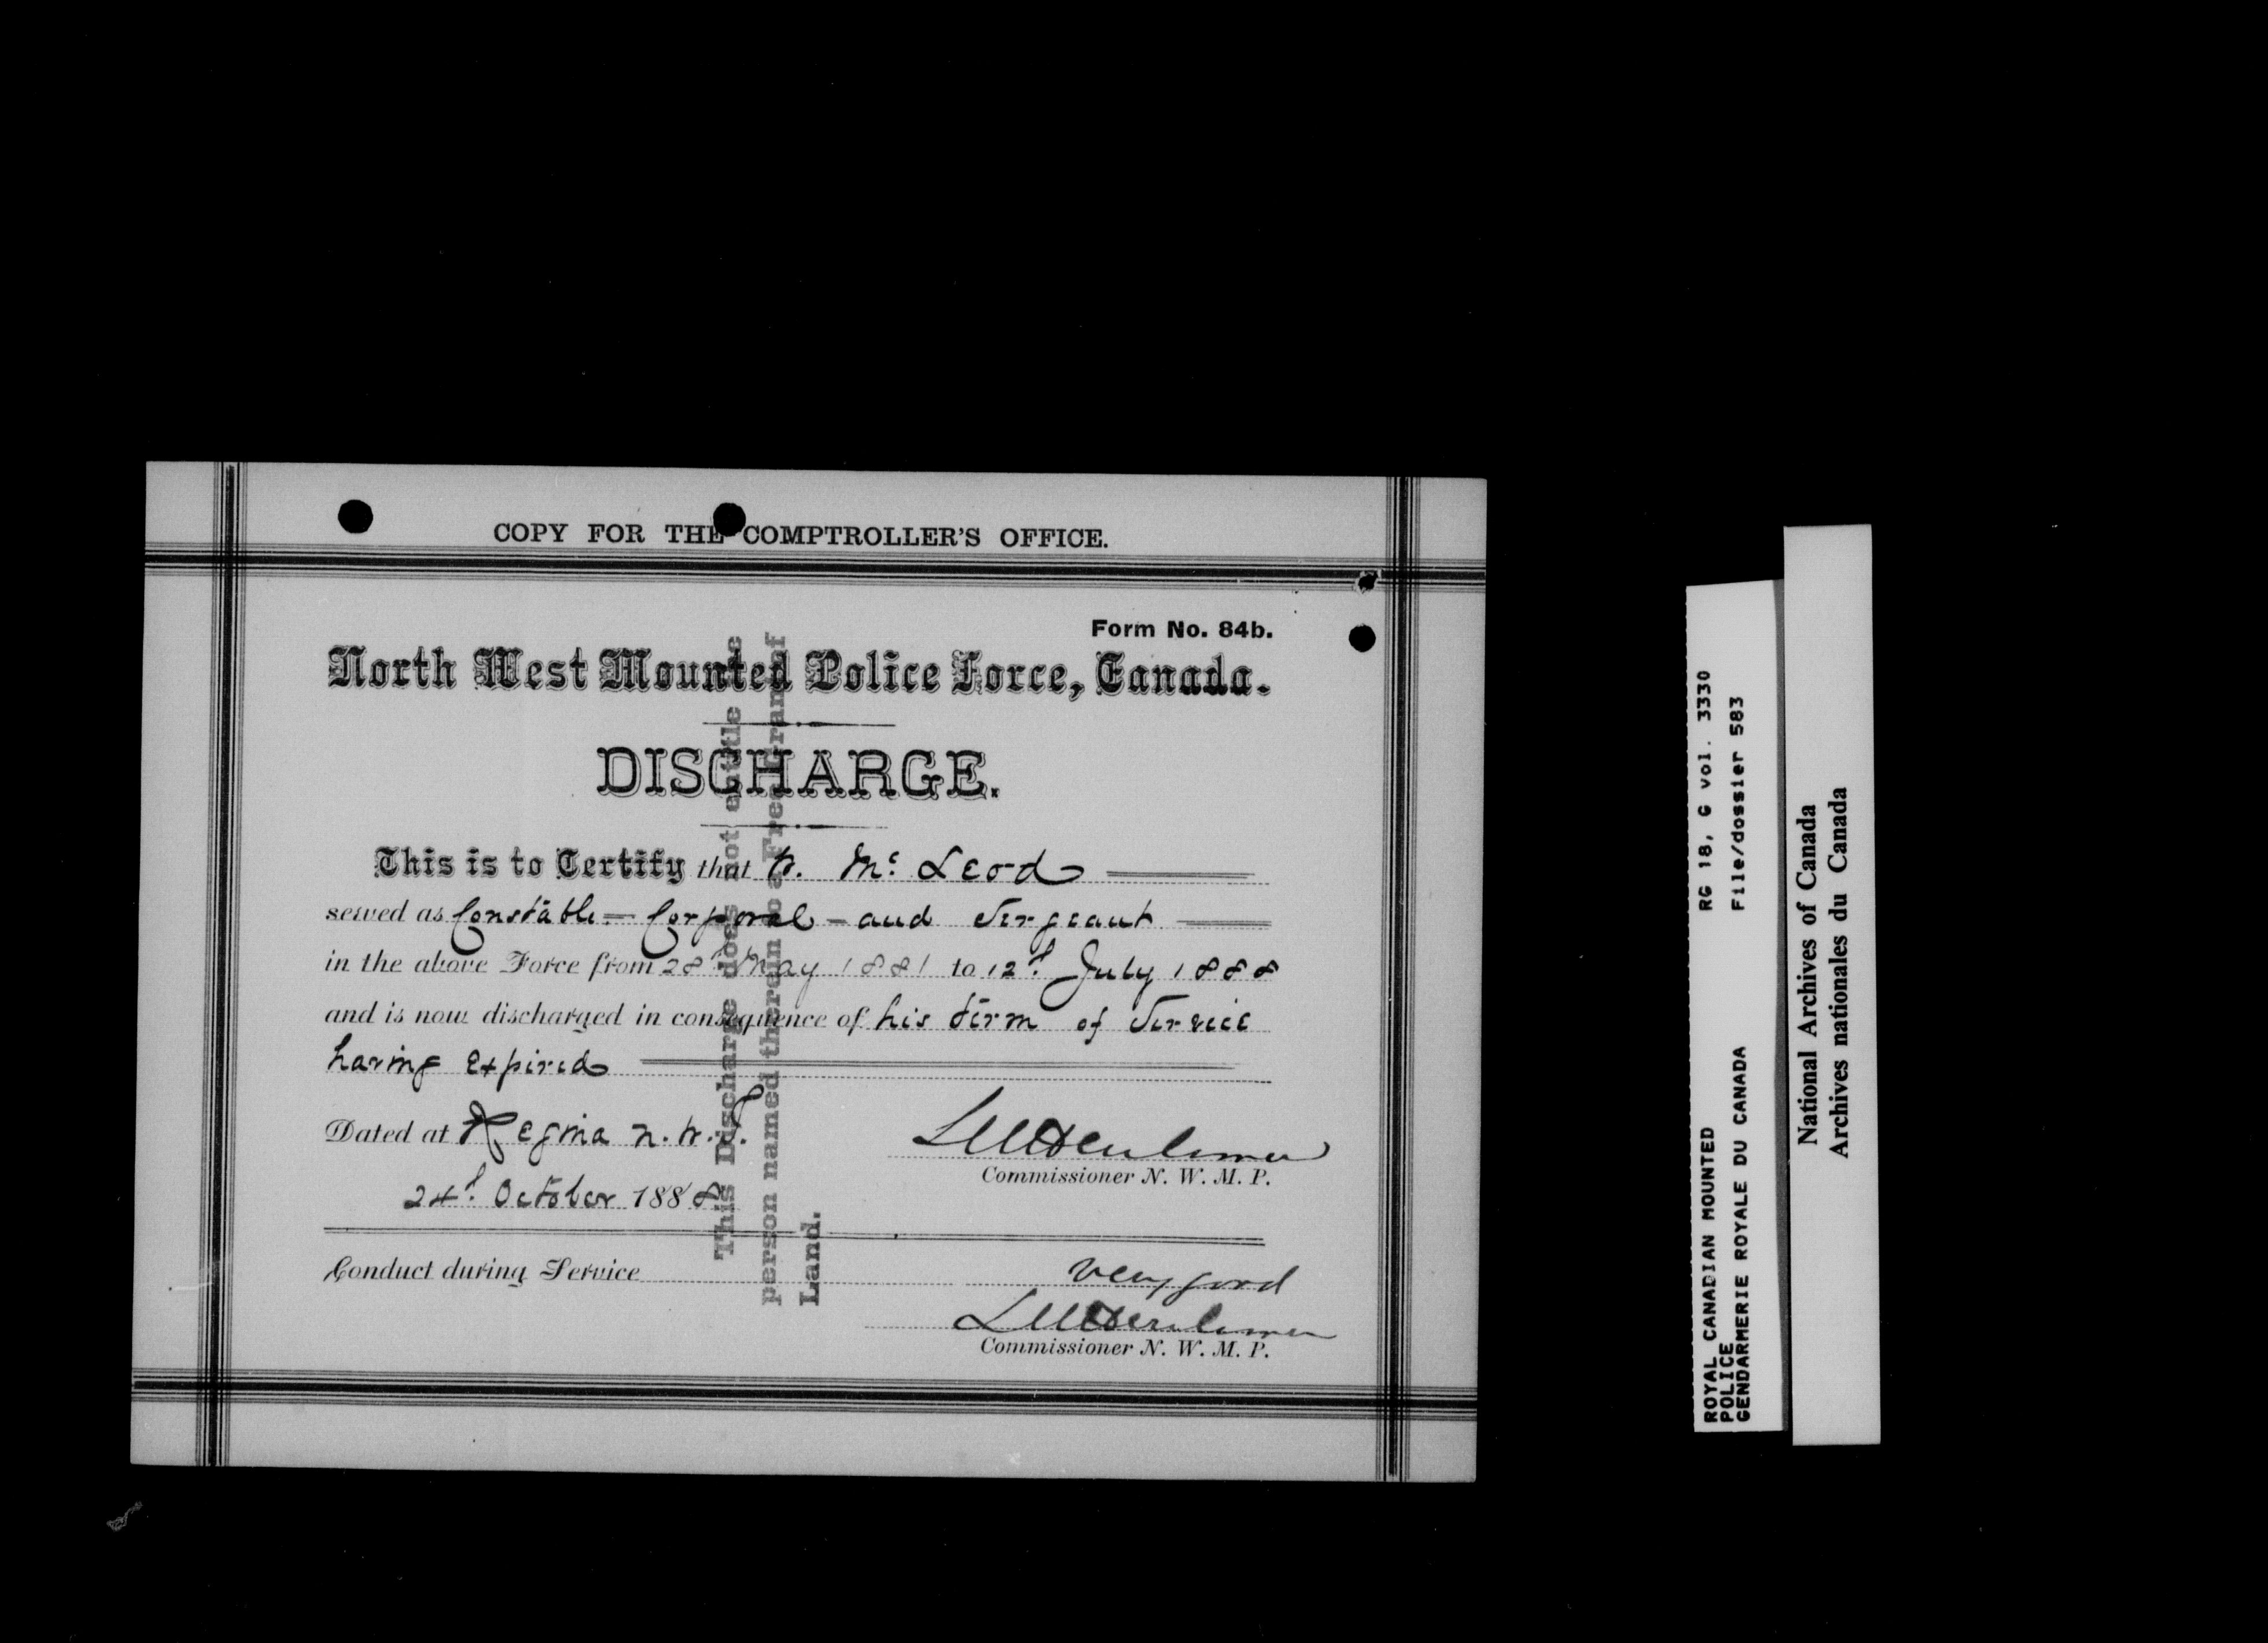 COPY FOR THE COMPTROLLER'S OFFICE.
Form No. 84b.
North West Mounted Police Force, Canada.
DISCHARGE.
This is to Certify that W. Mc Leod
served as Constable - Corporal - and Sergeant
in the above Force from 28th May 1881 to 12th July 1888
and is now discharged in consequence of his term of Service
having expired
Dated at Regina N.W.T.
24th October 1888
Commissioner N. W. M. P.
Conduct during Service very good
Commissioner N. W. M. P.
This Discharge does not entitle the
person named therein to a Free Grant of
Land.
ROYAL CANADIAN MOUNTED RG 18, G vol. 3330
POLICE
GENDARMERIE ROYALE DU CANADA File/dossier 583
National Archives of Canada
Archives nationales du Canada